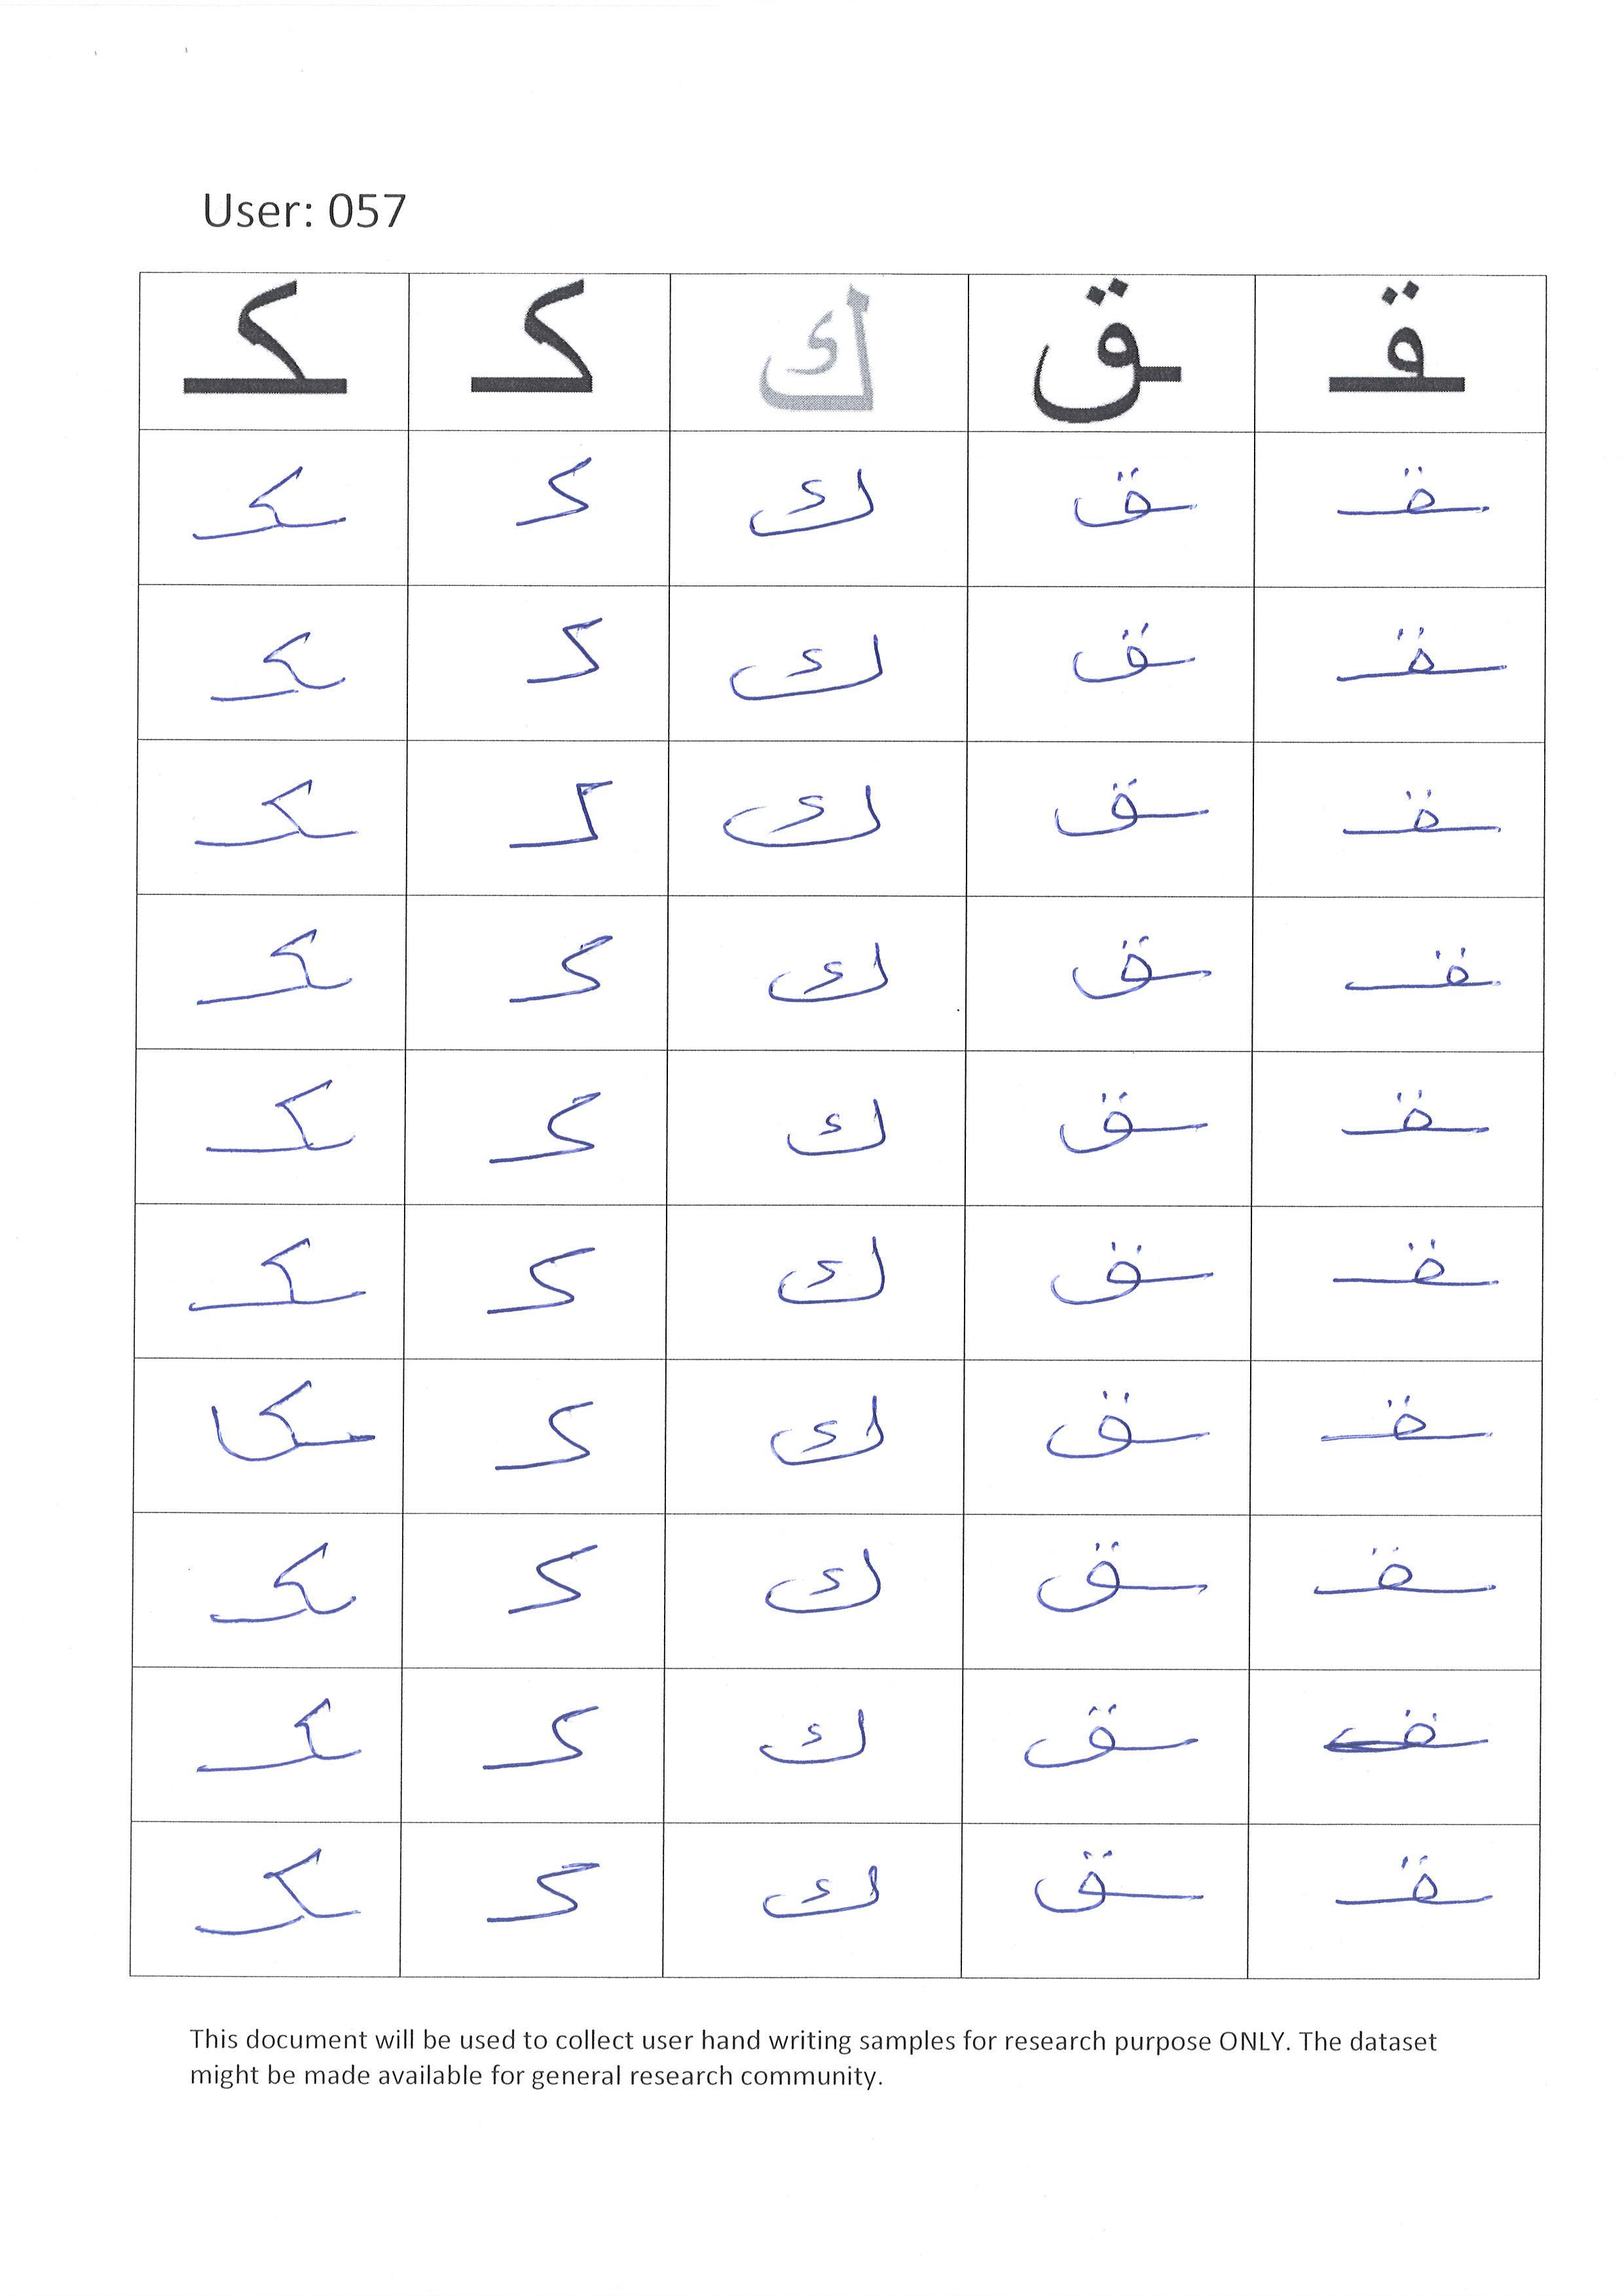 User: 057
ـقـ ـق ك كـ ـكـ
ـقـ ـق ك كـ ـكـ
ـقـ ـق ك كـ ـكـ
ـقـ ـق ك كـ ـكـ
ـقـ ـق ك كـ ـكـ
ـقـ ـق ك كـ ـكـ
ـقـ ـق ك كـ ـكـ
ـقـ ـق ك كـ ـكا
ـقـ ـق ك كـ ـكـ
ـقـ ـق ك كـ ـكـ
ـقـ ـق ك كـ ـكـ
This document will be used to collect user hand writing samples for research purpose ONLY. The dataset
might be made available for general research community.